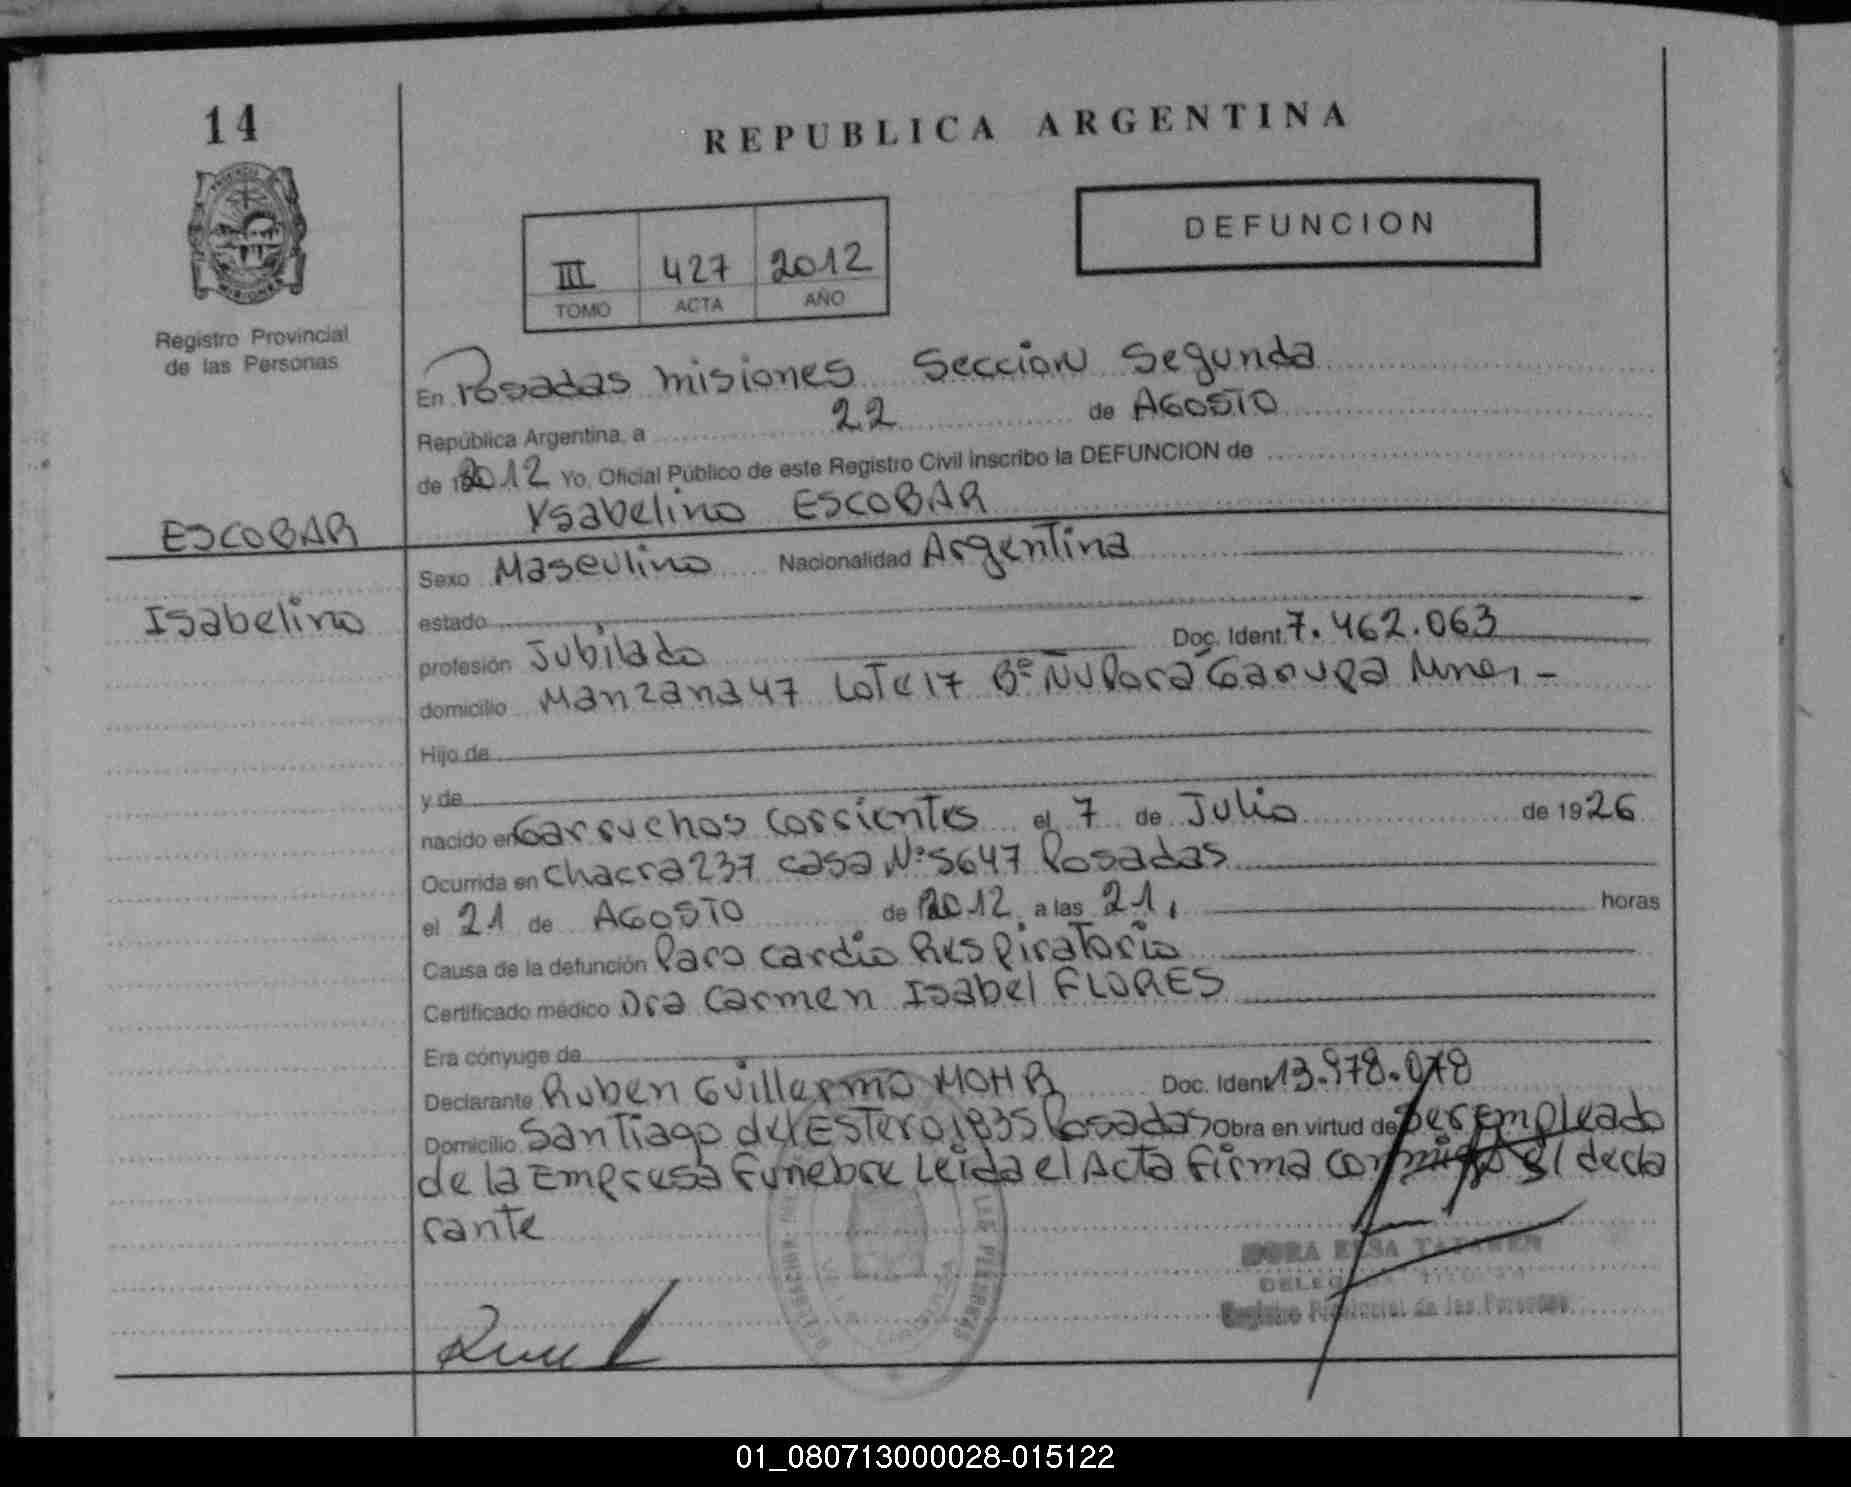 14
REPUBLICA ARGENTINA
DEFUNCION
III 427 2012
TOMO ACTA AÑO
Registro Provincial
de las Personas
En Posadas misiones Seccion Segunda
República Argentina, a 22 de AGOSTO
de 2012 Yo, Oficial Público de este Registro Civil inscribo la DEFUNCION de
Ysabelino ESCOBAR
ESCOBAR
Isabelino
Sexo Masculino Nacionalidad Argentina
estado
profesión Jubilado Doc. Ident. 7.462.063
domicilio Manzana 47 Lote 17 Bº Ñu Porá Garupa Mnes -
Hijo de
y de
nacido en Garruchos Corrientes el 7 de Julio de 1926
Ocurrida en Chacra 237 casa Nº 5647 Posadas
el 21 de AGOSTO de 2012 a las 21, horas
Causa de la defunción Paro Cardio Respiratorio
Certificado médico Dra Carmen Isabel FLORES
Era cónyuge de
Declarante Ruben Guillermo MOHR Doc. Ident 13.978.078
Domicilio Santiago del Estero 1835 Posadas Obra en virtud de Ser Empleado
de la Empresa Funebre Leida el Acta Firma conmigo el decla
rante
ELSA
Registro Provincial de las Personas
01_080713000028-015122